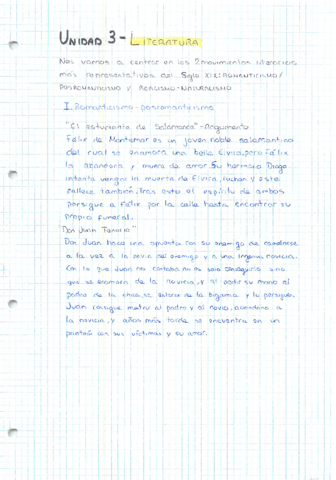 UNIDAD 3 - LITERATURA
Nos vamos a centrar en los 2 movimientos literarios
más representativos del Siglo XIX: ROMANTICISMO/
POSROMANTICISMO Y REALISMO-NATURALISMO
I. Romanticismo - posromanticismo
"El estudiante de Salamanca" - Argumento
Félix de Montemar es un joven noble salamantino
del cual se enamora una bella Elvira, pero Félix
la abandona y muere de amor. Su hermano Diego
intenta vengar la muerte de Elvira, luchan y este
fallece también, tras esto el espíritu de ambos
persigue a Félix por la calle hasta encontrar su
propio funeral.
"Don Juan Tenorio"
Don Juan hace una apuesta con su enemigo de
a la vez a la novia del enemigo y a una novicia.
Con lo que Juan no contaba no es solo sino
que se enamora de la novicia, y al pedir su mano al
padre de la chica, se enteran de la y lo persiguen.
Juan consigue matar al padre y al novio, abandona a
la novicia, y años más tarde se encuentra en un
panteón con sus víctimas y su amor.